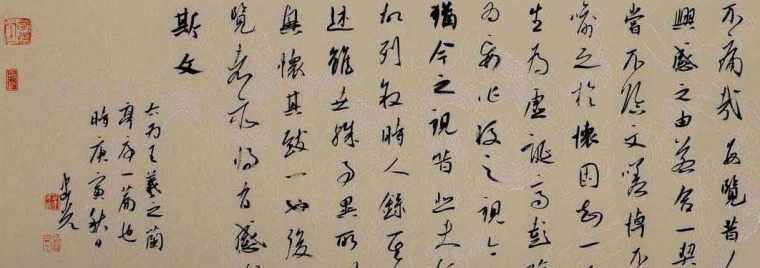 不痛哉每覽昔人
興感之由若合一契
嘗不臨文嗟悼不
喻之於懷固知一
生為虛誕齊彭殤
為妄作後之視今
猶今之視昔悲夫
故列敘時人錄其
述雖世殊事異所
興懷其致一也後
覽者亦將有感
斯文
右為王羲之蘭
亭序一篇也
時庚寅秋日